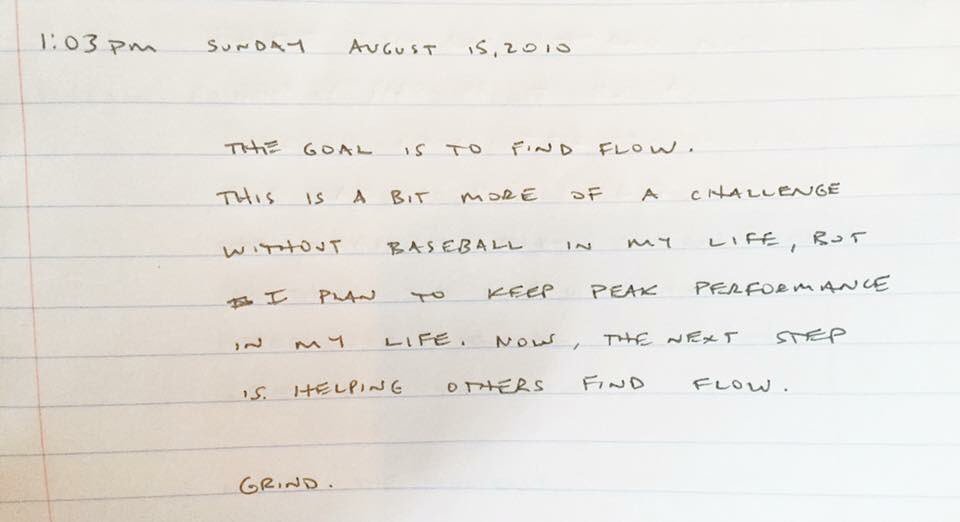 1:03 PM SUNDAY AUGUST 15, 2010
THE GOAL IS TO FIND FLOW.
THIS IS A BIT MORE OF A CHALLENGE
WITHOUT BASEBALL IN MY LIFE, BUT
I PLAN TO KEEP PEAK PERFORMANCE
IN MY LIFE. NOW, THE NEXT STEP
IS HELPING OTHERS FIND FLOW.
GRIND.